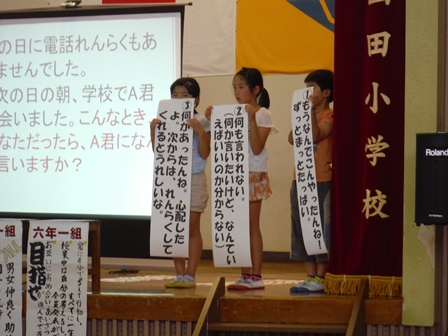 の日に電話れんらくもあ
ませんでした。
次の日の朝、学校でA君
会いました。こんなとき
なただったら、A君になん
言いますか？
3 何かあったんね。心配した
よ。次からは、れんらくして
くれるとうれしいな。
2 何も言われない。
(何か言いたいけど、なんてい
えばいいのか分からない)
1 もうなんでこんやったんね！
ずっとまっとったばい。
田小学校
Roland
一組
男女仲良く助
六年一組
目指せ